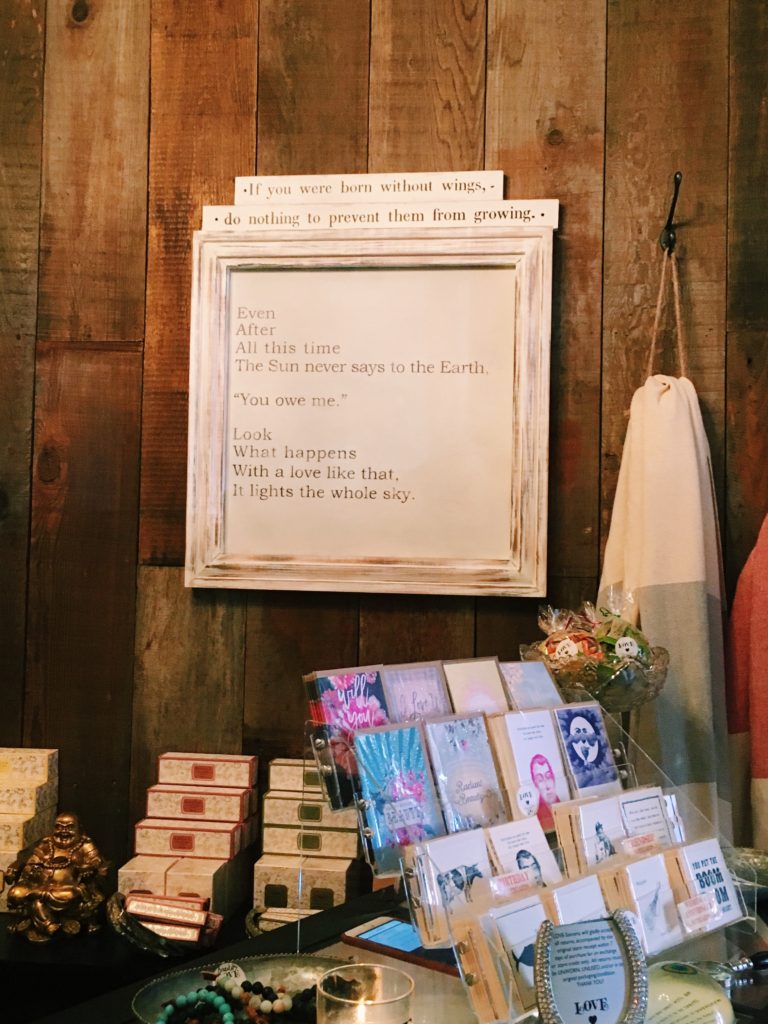 ·If you were born without wings,·
·do nothing to prevent them from growing.·
Even
After
All this time
The Sun never says to the Earth,
"You owe me."
Look
What happens
With a love like that,
It lights the whole sky.
will
YOU
Radiant
Beauty
LOVE
LOVE
BIRTHDAY
YOU PUT THE
BOOM
LOVE